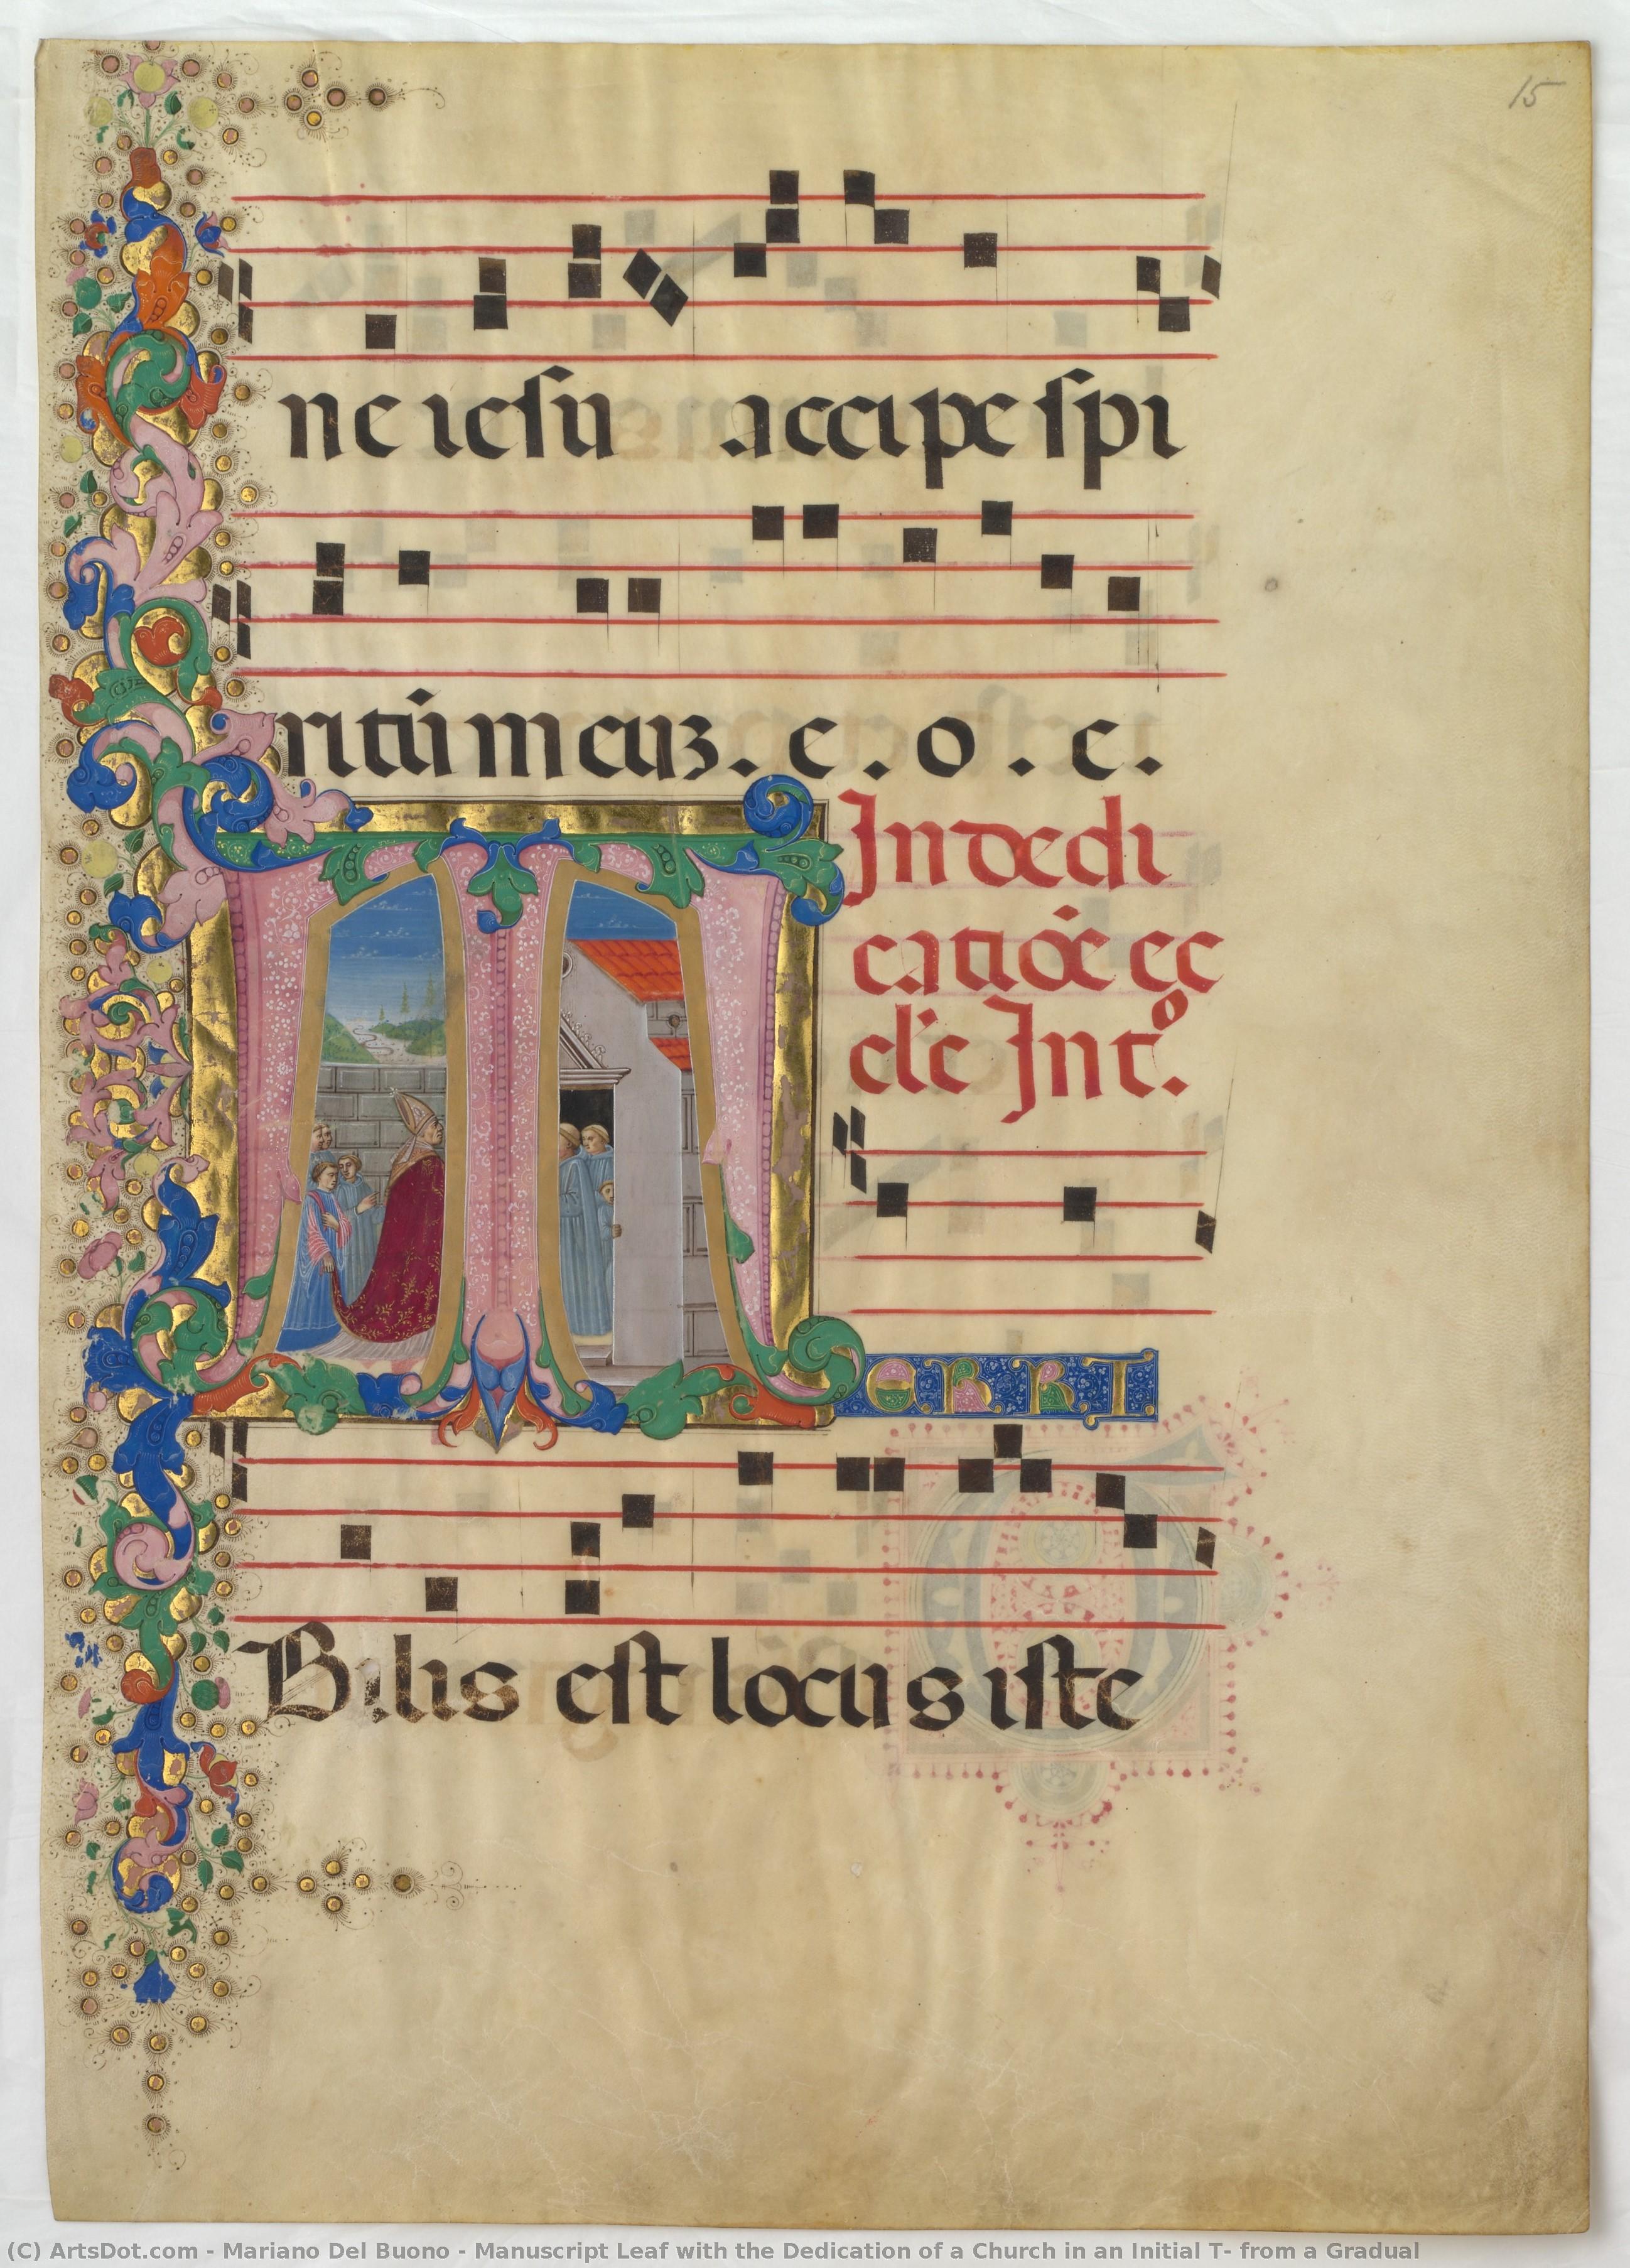 15
ne iesu accipe spi
ritū meuꝫ. e. o. e.
In dedi
catiōe ec
cl'e Int.º
TERRI
Bilis est locus iste
(C) ArtsDot.com - Mariano Del Buono - Manuscript Leaf with the Dedication of a Church in an Initial T- from a Gradual